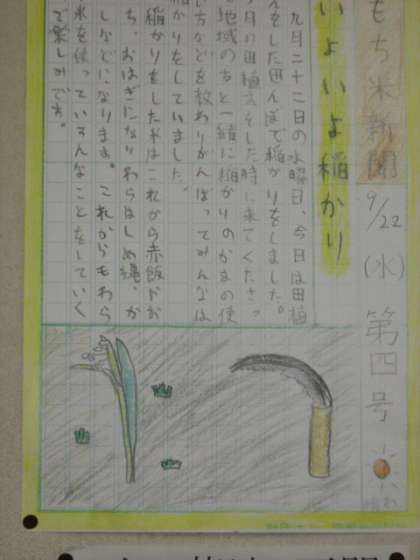 もち米新聞 9/22 (水) 第四号
いよいよ稲かり
九月二十二日の水曜日、今日は田植
えをした田んぼで稲かりをしました。
月の田植えをした時に来てくださっ
地域の方と一緒に稲かりのかまの使
い方などを教わりがんばってみんなは
稲かりをしていました。
稲かりをした米はこれから赤飯やお
ち、おはぎになりわらはしめ縄、か
しなどになります。これからもわら
米を使っていろんなことをしていく
で楽しみです。